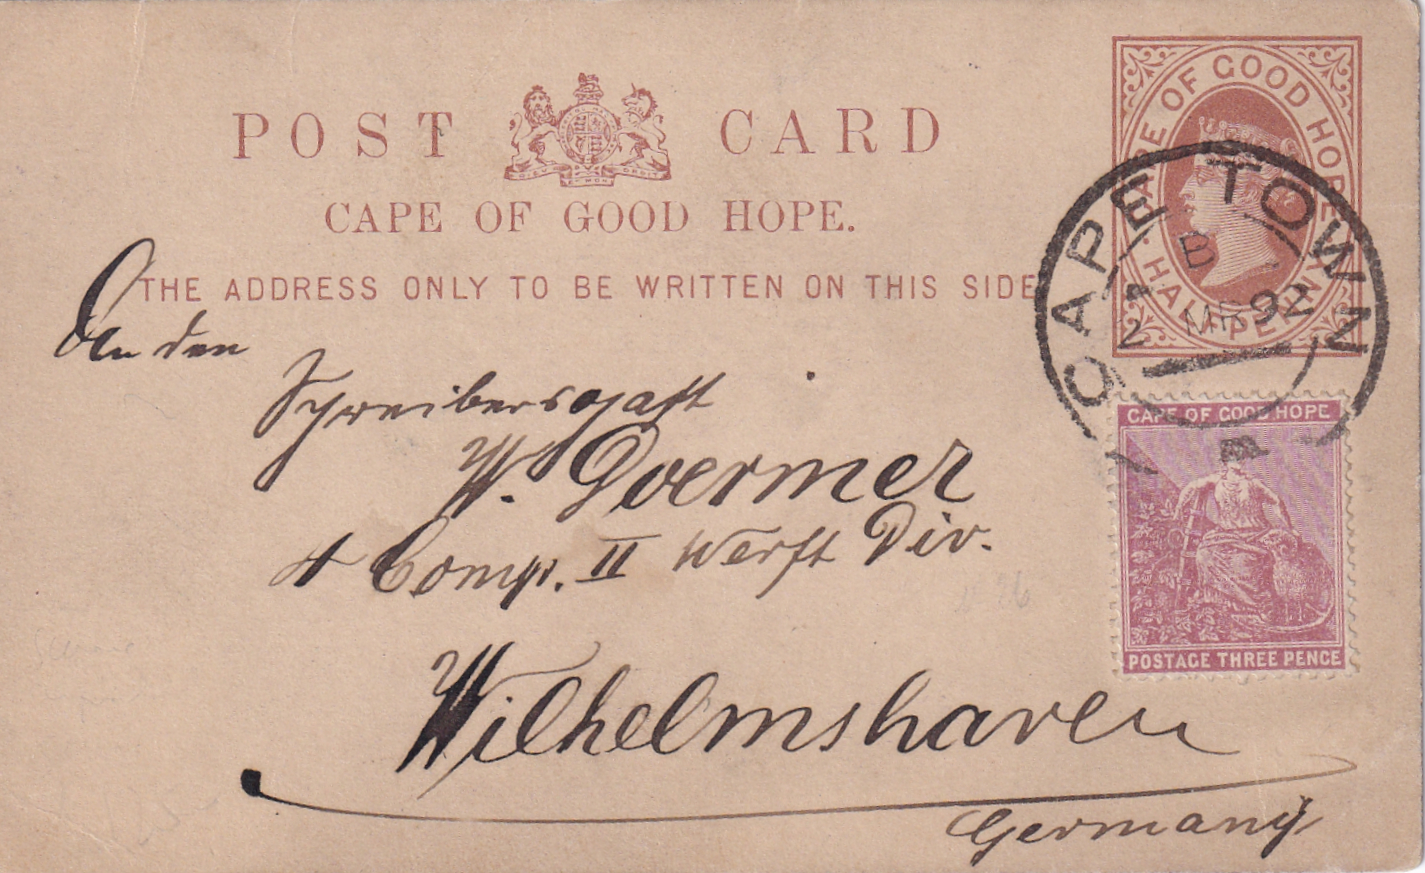 POST CARD
DIEU ET MON DROIT
CAPE OF GOOD HOPE.
THE ADDRESS ONLY TO BE WRITTEN ON THIS SIDE
CAPE OF GOOD HOPE
HALF PENNY
CAPE TOWN
B
2
MR 92
An den
Schreibersgast
W. Goermer
4 Comp. II Werft Div.
Wilhelmshaven
Germany
CAPE OF GOOD HOPE
POSTAGE THREE PENCE